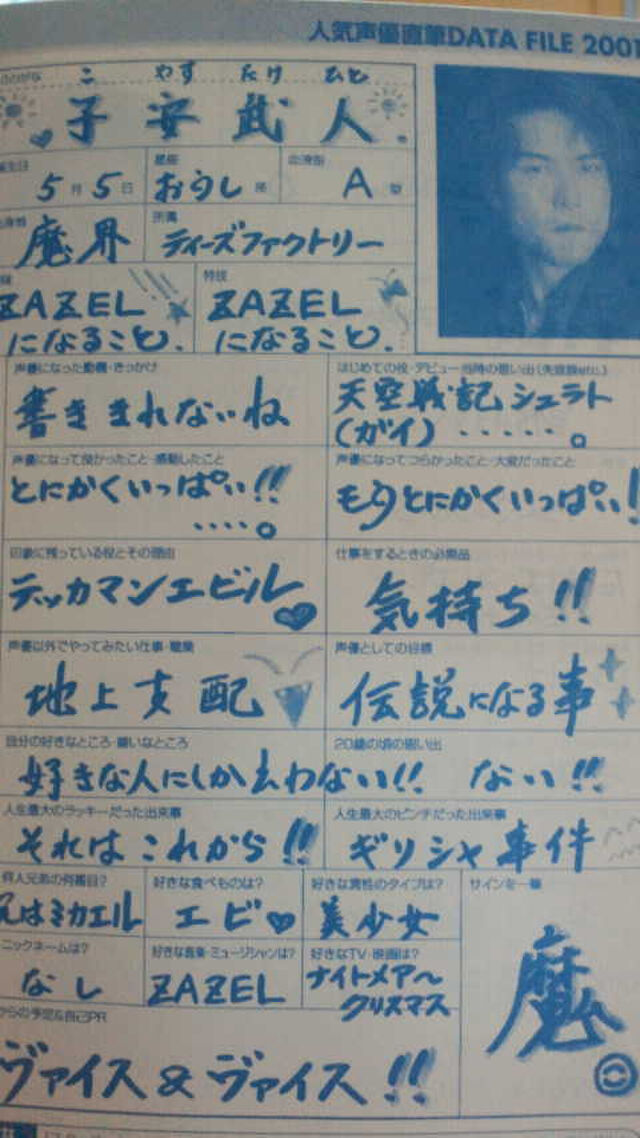 人気声優直筆DATA FILE 2001
こ やす たけ ひと
子安武人
星座
血液型
5月5日
おうし座
A型
所属
魔界
ティーズファクトリー
特技
ZAZEL
になること.
ZAZEL
になること.
声優になった動機・きっかけ
書ききれないね
はじめての役・デビュー当時の思い出(失敗談etc.)
天空戦記シュラト
(ガイ)‥‥‥。
声優になって良かったこと・感動したこと
とにかくいっぱい!!
‥‥。
声優になってつらかったこと・大変だったこと
もうとにかくいっぱい!
印象に残っている役とその理由
テッカマンエビル
仕事をするときの必需品
気持ち!!
声優以外でやってみたい仕事・職業
地上支配
声優としての目標
伝説になる事
自分の好きなところ・嫌いなところ
好きな人にしか云わない!!
20歳の頃の思い出
ない!!
人生最大のラッキーだった出来事
それはこれから!!
人生最大のピンチだった出来事
ギリシャ事件
何人兄弟の何番目?
兄はミカエル
好きな食べものは?
エビ
好きな異性のタイプは?
美少女
サインを一筆
魔
ニックネームは?
なし
好きな音楽・ミュージシャンは?
ZAZEL
好きなTV・映画は?
ナイトメア〜
クリスマス
からの予定&自己PR
ヴァイス&ヴァイス!!